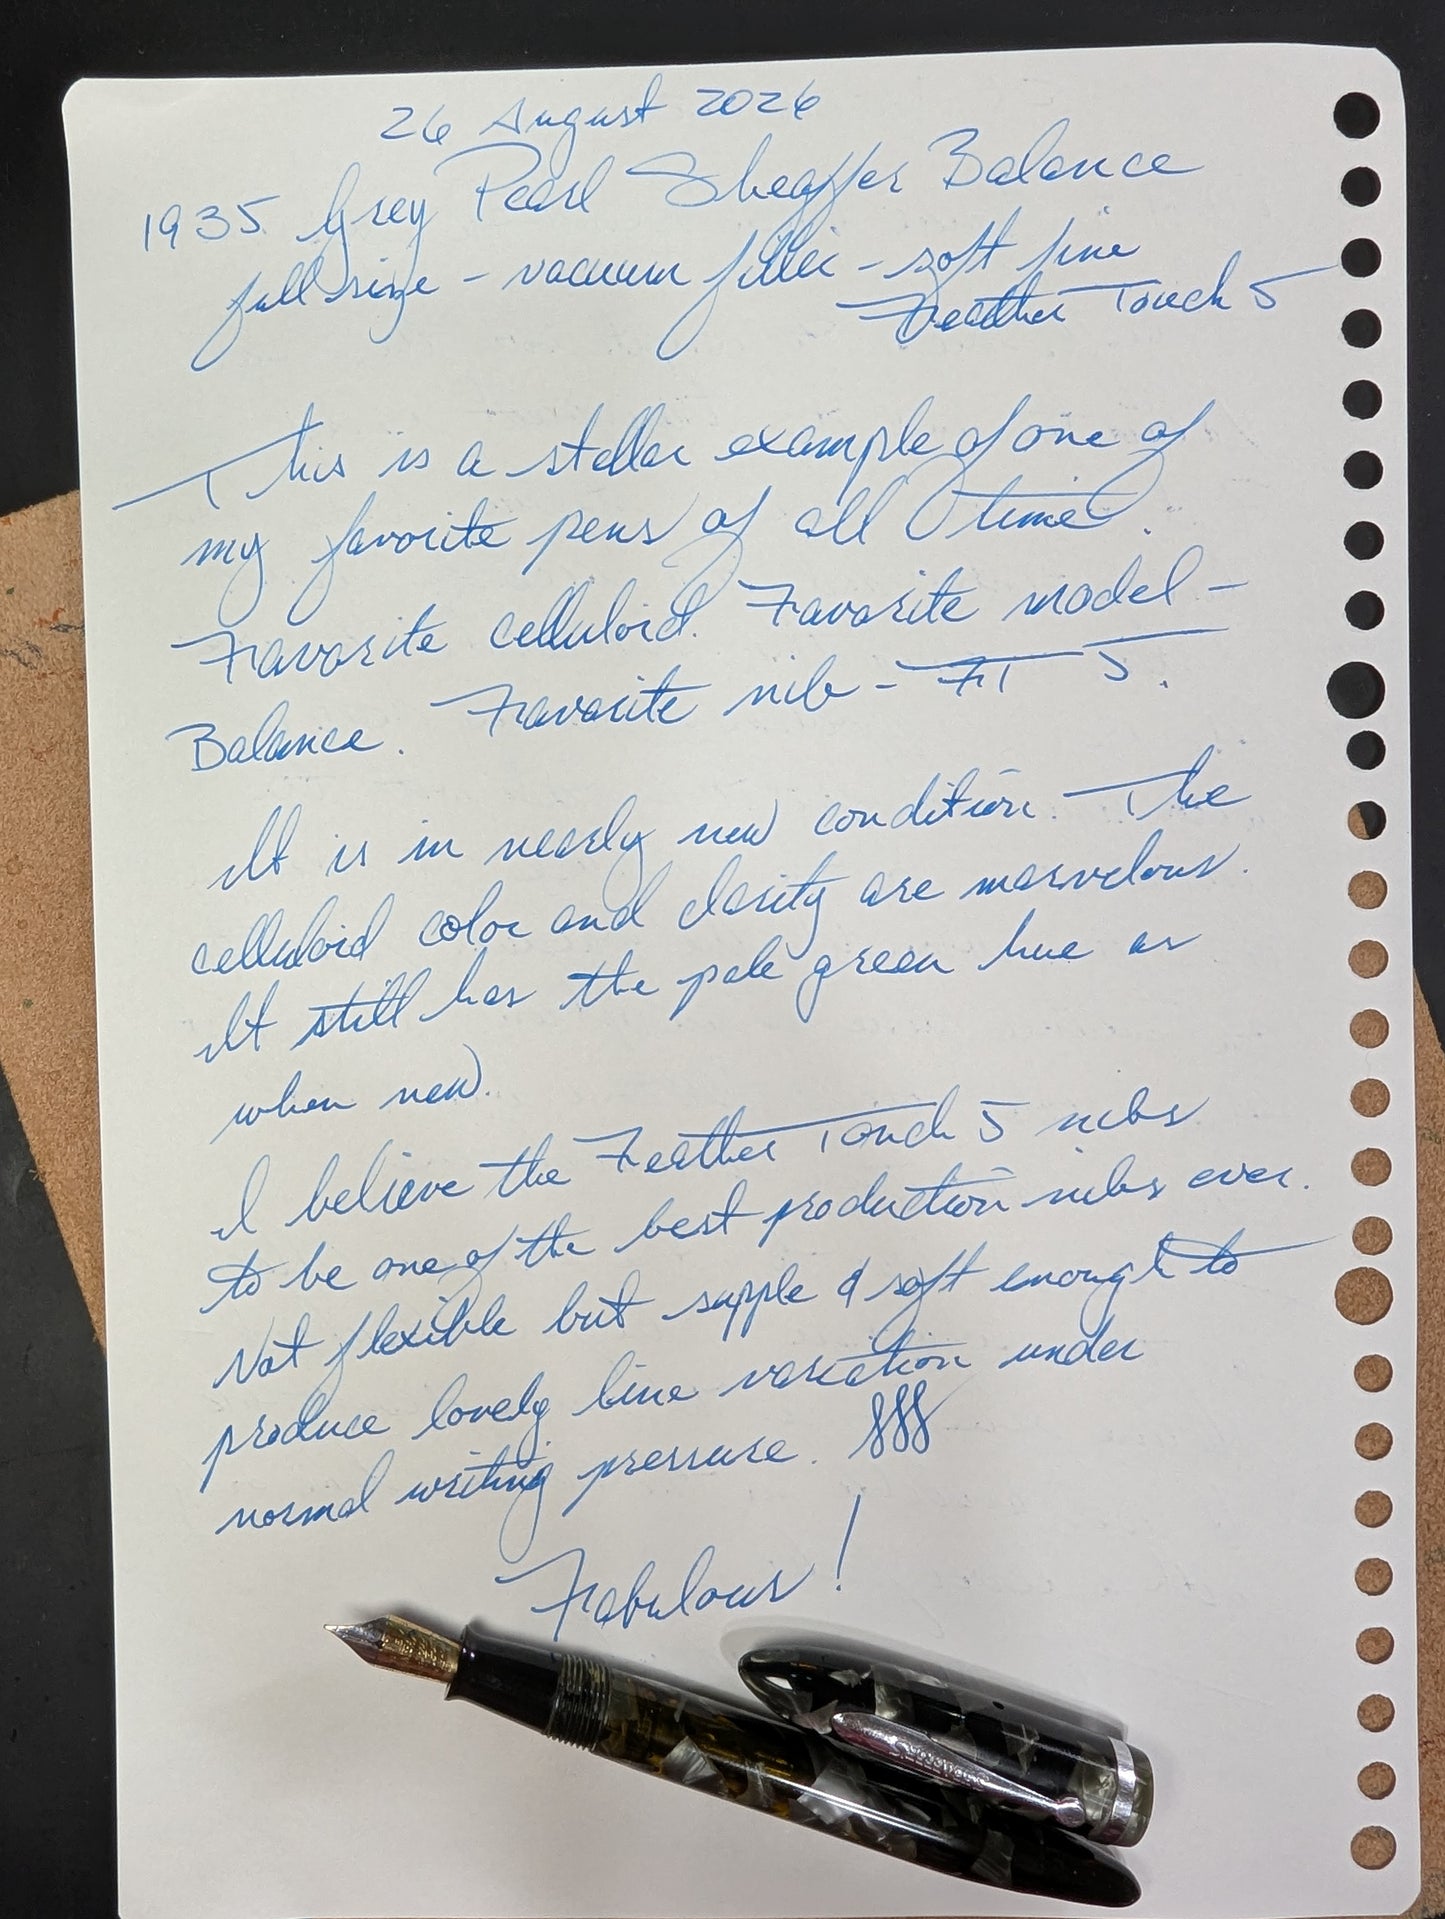 26 August 2026
1935 Grey Pearl Sheaffer Balance
full size - vacuum filler - soft fine
Feather Touch 5
This is a stellar example of one of
my favorite pens of all time.
Favorite celluloid. Favorite model -
Balance. Favorite nib - FT 5.
It is in nearly new condition. The
celluloid color and clarity are marvelous.
It still has the pale green hue as
when new.
I believe the Feather Touch 5 nibs
to be one of the best production nibs ever.
Not flexible but supple & soft enough to
produce lovely line variation under
normal writing pressure.
Fabulous!